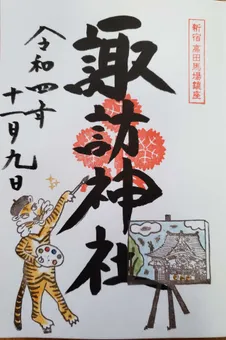 新宿 高田馬場鎮座
諏訪神社
令和四年
十一月九日